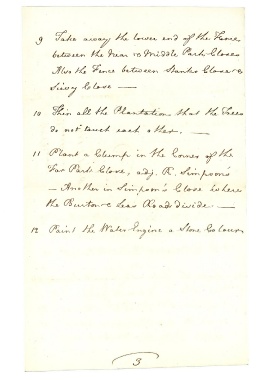 9 Take away the lower end of the Fence
between the Near & Middle Park Closes
Also the Fence between Stanks Close &
Close —
10 Thin all the Plantations that the Trees
do not touch each other. —
11 Plant a Clump in the Corner of the
Far Park Close, adj. R. Simpson's
— Another in Simpson's Close where
the Burton & Leas Road divide. —
12 Paint the Water Engine a Stone Colour
3